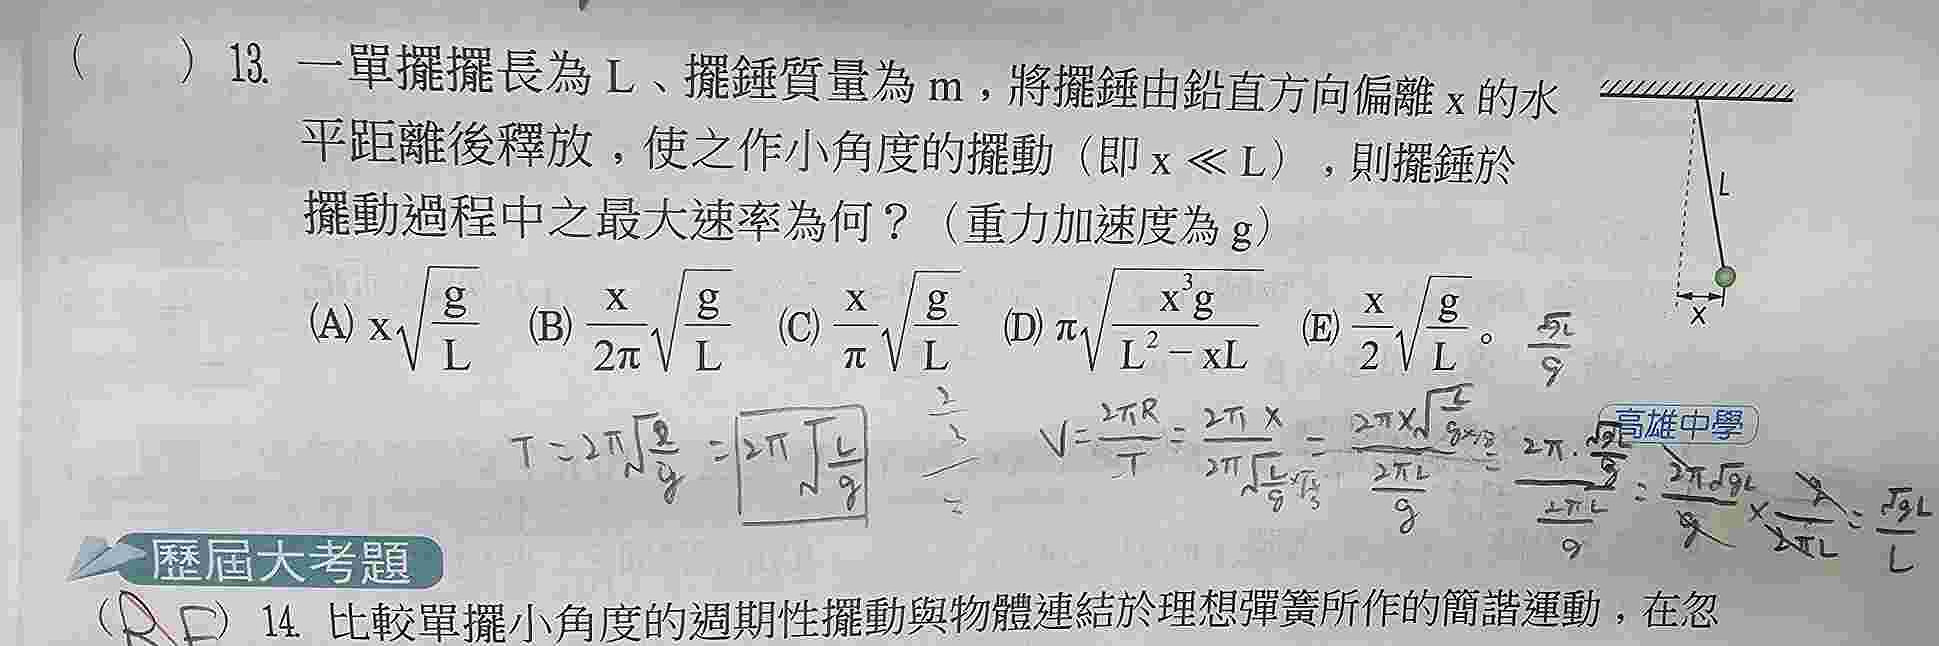 ( ) 13. 一單擺擺長為 L、擺錘質量為 m，將擺錘由鉛直方向偏離 x 的水
平距離後釋放，使之作小角度的擺動（即 x ≪ L），則擺錘於
擺動過程中之最大速率為何？（重力加速度為 g）
L
x
(A) x√(g/L) (B) x/2π √(g/L) (C) x/π √(g/L) (D) π√(x³g/(L²－xL)) (E) x/2 √(g/L)。
√gL/g
T=2π√(ℓ/g) = 2π√(L/g)
V=2πR/T = 2πx/2π√(L/g)
= √gL/L
高雄中學
歷屆大考題
( ) 14. 比較單擺小角度的週期性擺動與物體連結於理想彈簧所作的簡諧運動，在忽